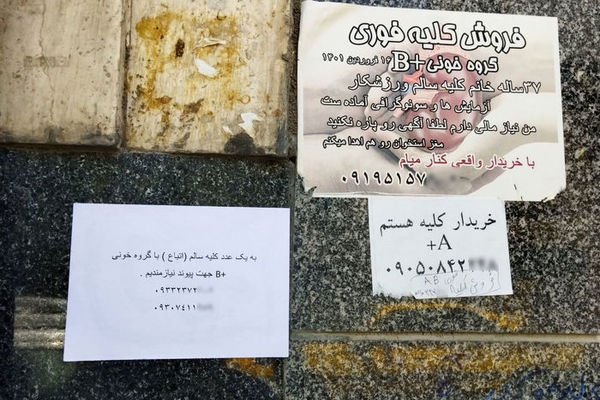 فروش کلیه فوری
گروه خونی +B ۱۶ فروردین ۱۴۰۱
۳۷ساله خانم کلیه سالم ورزشکار
آزمایش ها و سونوگرافی آماده ست
من نیاز مالی دارم لطفا آگهی رو پاره نکنید
مغز استخوان رو هم اهدا میکنم
با خریدار واقعی کنار میام
۰۹۱۹۵۱۵۷
خریدار کلیه هستم
A+
۰۹۰۵۰۸۴۲
AB
به یک عدد کلیه سالم ( اتباع ) با گروه خونی
B+ جهت پیوند نیازمندیم .
۰۹۳۳۲۳۷۲
۰۹۳۰۷۴۱۱